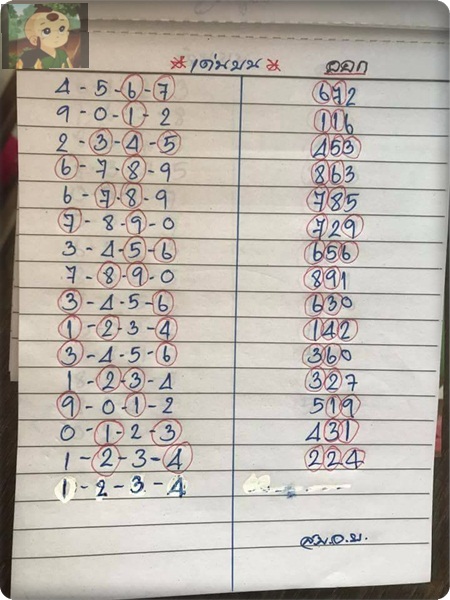 * เด่นบน * ออก
4-5-6-7 672
9-0-1-2 116
2-3-4-5 453
6-7-8-9 863
6-7-8-9 785
7-8-9-0 729
3-4-5-6 656
7-8-9-0 891
3-4-5-6 630
1-2-3-4 142
3-4-5-6 360
1-2-3-4 327
9-0-1-2 519
0-1-2-3 431
1-2-3-4 224
1-2-3-4